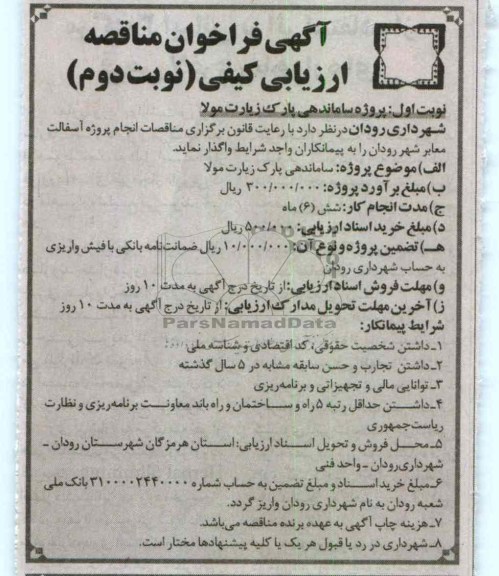 آگهی فراخوان مناقصه
ارزیابی کیفی (نوبت دوم)
نوبت اول: پروژه ساماندهی پارک زیارت مولا
شهرداری رودان درنظر دارد با رعایت قانون برگزاری مناقصات انجام پروژه آسفالت
معابر شهر رودان را به پیمانکاران واجد شرایط واگذار نماید.
الف) موضوع پروژه: ساماندهی پارک زیارت مولا
ب) مبلغ برآورد پروژه: ۳۰۰/۰۰۰/۰۰۰ ریال
ج) مدت انجام کار: شش (۶) ماه
د) مبلغ خرید اسناد ارزیابی: ۵۰۰/۰۰۰ ریال
هـ) تضمین پروژه و نوع آن: ۱۰/۰۰۰/۰۰۰ ریال ضمانت‌نامه بانکی یا فیش واریزی
به حساب شهرداری رودان
و) مهلت فروش اسناد ارزیابی: از تاریخ درج آگهی به مدت ۱۰ روز
ز) آخرین مهلت تحویل مدارک ارزیابی: از تاریخ درج آگهی به مدت ۱۰ روز
ParsNamadData
شرایط پیمانکار:
۱ـ داشتن شخصیت حقوقی، کد اقتصادی و شناسه ملی
۲ـ داشتن تجارب و حسن سابقه مشابه در ۵ سال گذشته
۳ـ توانایی مالی و تجهیزاتی و برنامه‌ریزی
۴ـ داشتن حداقل رتبه ۵ راه و ساختمان و راه باند معاونت برنامه‌ریزی و نظارت
ریاست‌جمهوری
۵ـ محل فروش و تحویل اسناد ارزیابی: استان هرمزگان شهرستان رودان ـ
شهرداری رودان ـ واحد فنی
۶ـ مبلغ خرید اسناد و مبلغ تضمین به حساب شماره ۳۱۰۰۰۰۲۴۴۰۰۰۰ بانک ملی
شعبه رودان به نام شهرداری رودان واریز گردد.
۷ـ هزینه چاپ آگهی به عهده برنده مناقصه می‌باشد.
۸ـ شهرداری در رد یا قبول هر یک یا کلیه پیشنهادها مختار است.